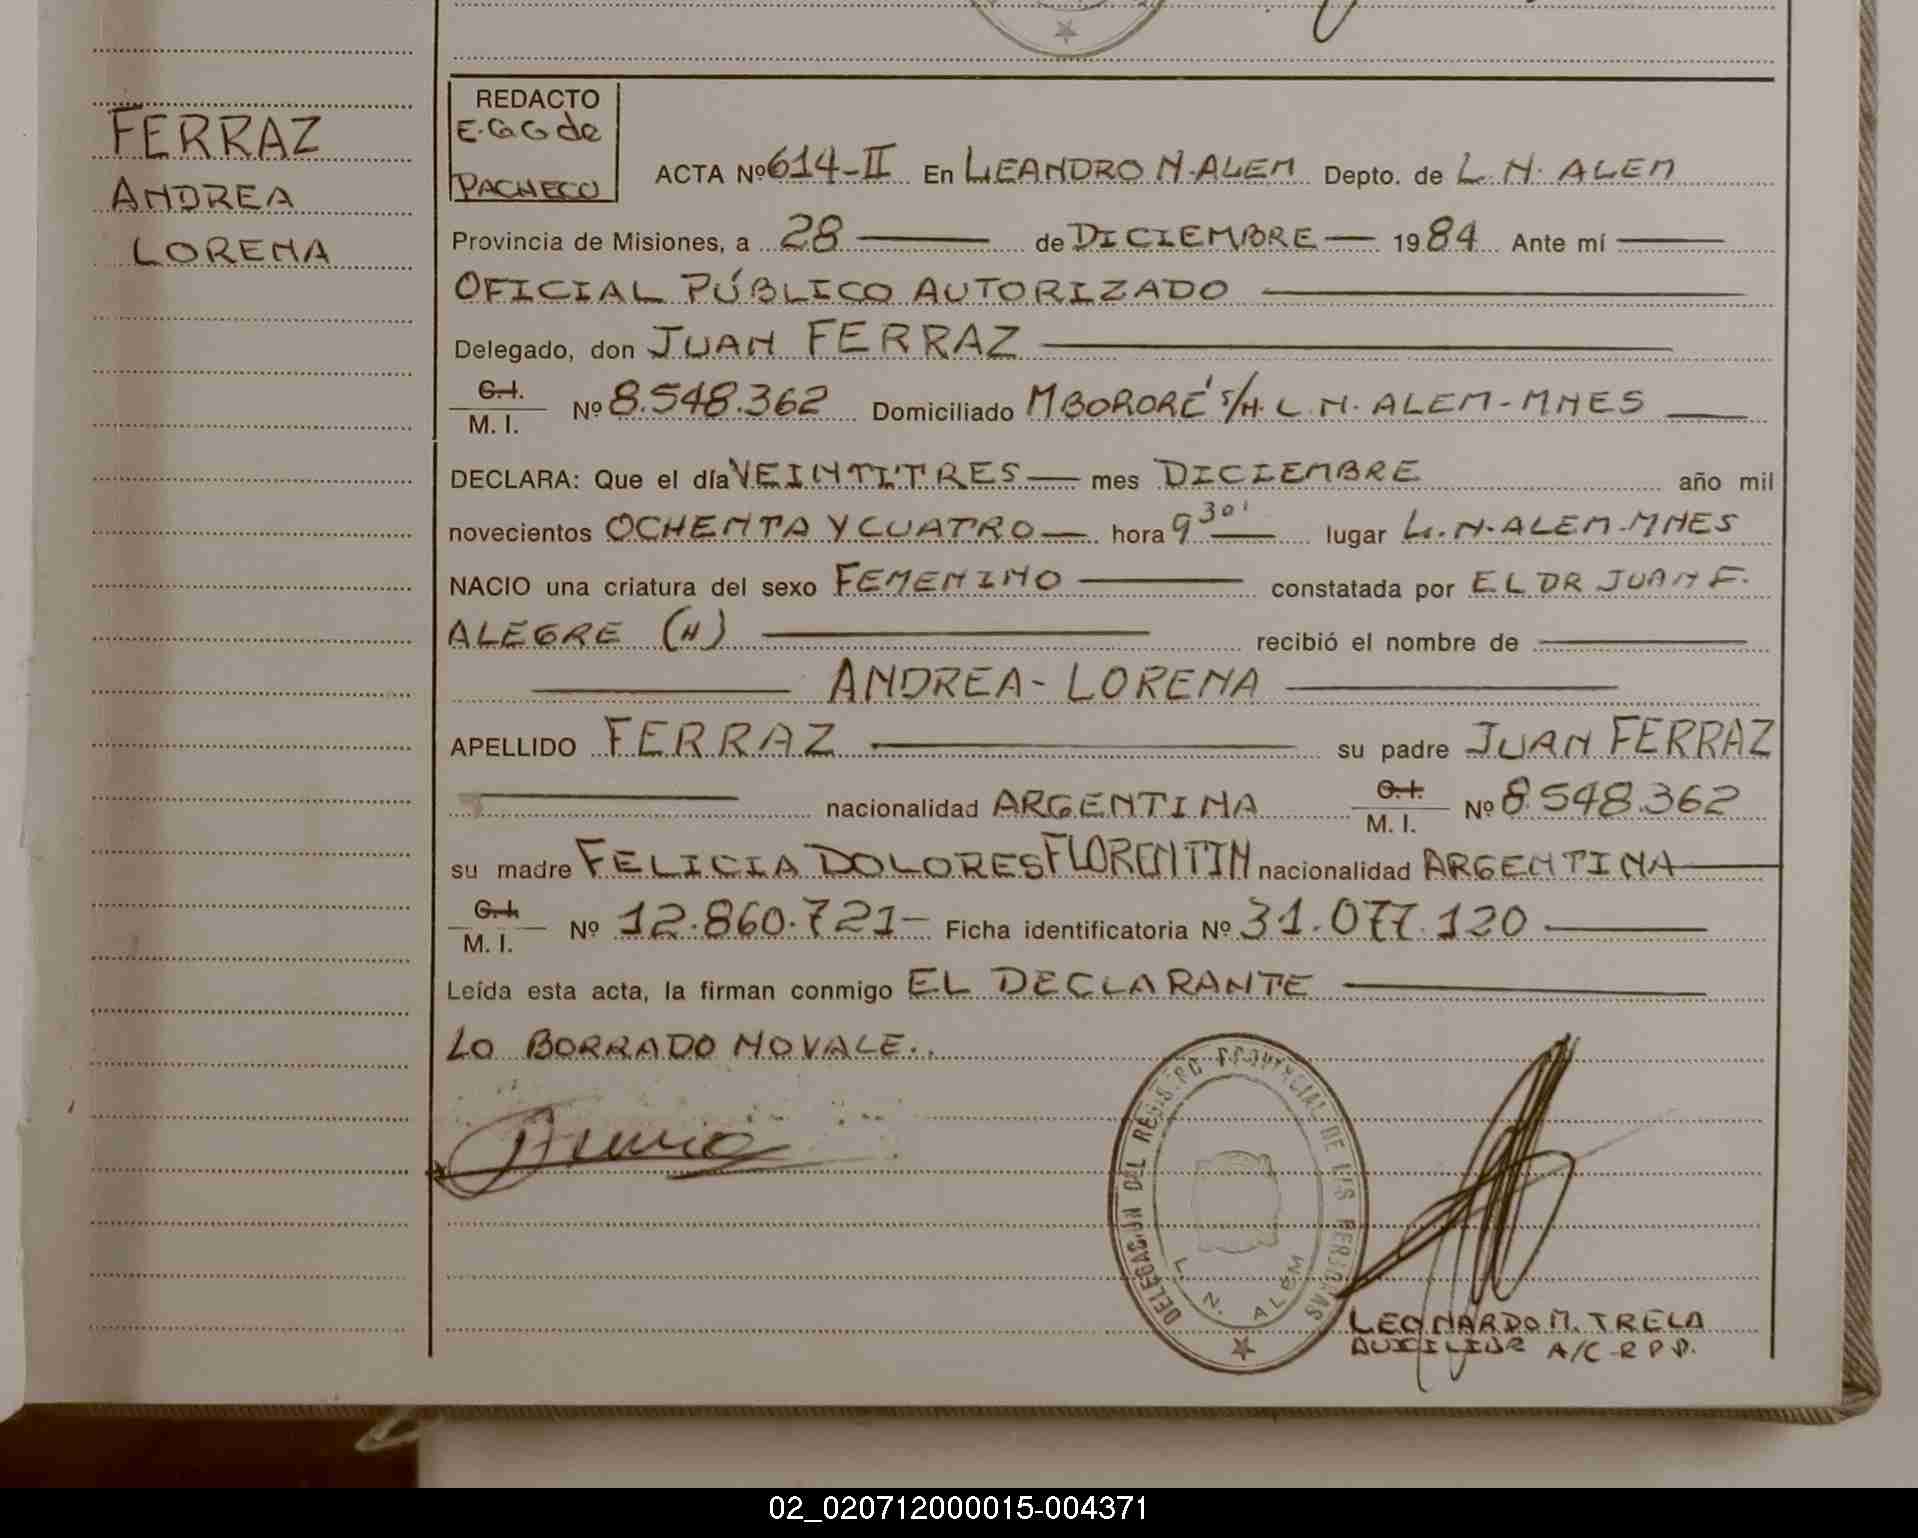 FERRAZ
ANDREA
LORENA
REDACTO
E. G. G de
PACHECO
ACTA Nº 614-II En LEANDRO N. ALEM Depto. de L. N. ALEM
Provincia de Misiones, a 28 de DICIEMBRE 1984 Ante mí
OFICIAL PÚBLICO AUTORIZADO
Delegado, don JUAN FERRAZ
C.I.
M. I. Nº 8.548.362 Domiciliado MBORORÉ S/N. L. N. ALEM - MNES
DECLARA: Que el día VEINTITRES mes DICIEMBRE año mil
novecientos OCHENTA Y CUATRO hora 9 30' lugar L. N. ALEM - MNES
NACIO una criatura del sexo FEMENINO constatada por EL DR JUAN F.
ALEGRE (H) recibió el nombre de
ANDREA - LORENA
APELLIDO FERRAZ su padre JUAN FERRAZ
nacionalidad ARGENTINA C.I.
M. I. Nº 8.548.362
su madre FELICIA DOLORES FLORENTIN nacionalidad ARGENTINA
C.I.
M. I. Nº 12.860.721- Ficha identificatoria Nº 31.077.120
Leída esta acta, la firman conmigo EL DECLARANTE
LO BORRADO NO VALE..
DELEGACIÓN DEL REGISTRO PROVINCIAL DE LAS PERSONAS
L. N. ALEM
LEONARDO M. TRELA
AUXILIAR A/C - R P P.
02_020712000015-004371